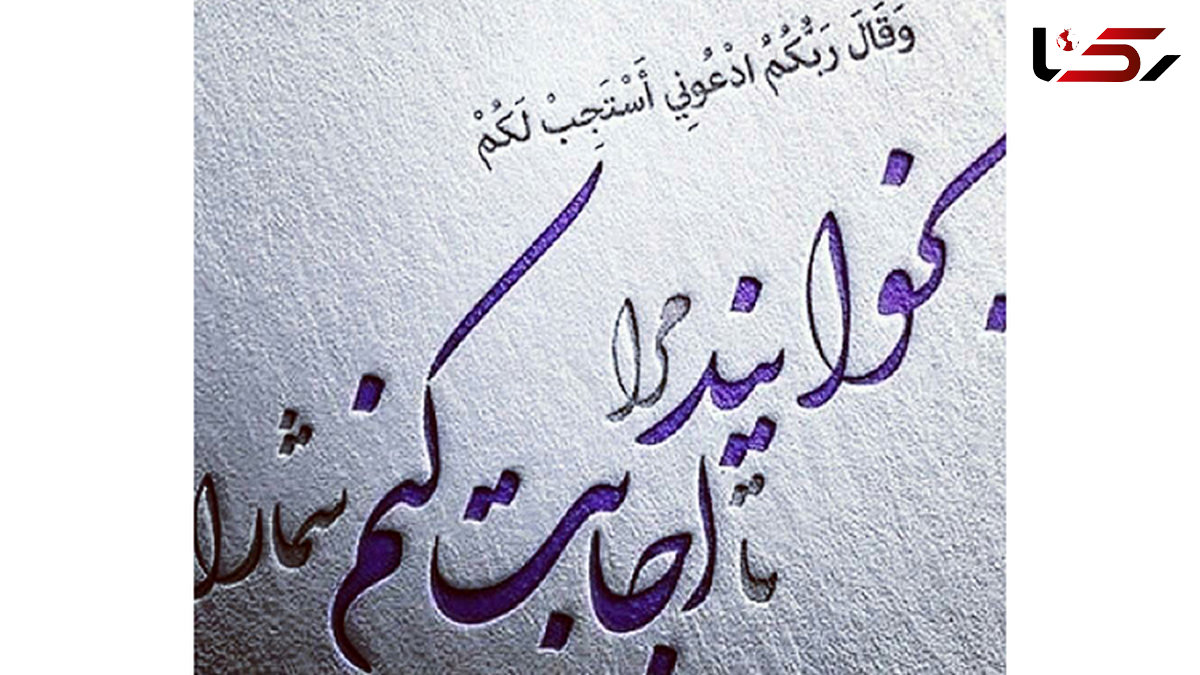 رکنا
وَقَالَ رَبُّكُمُ ادْعُونِي أَسْتَجِبْ لَكُمْ
بخوانید مرا
تا اجابت کنم شما را